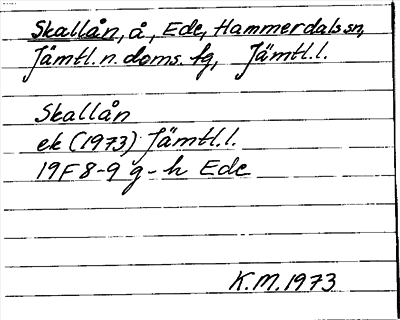 Skallån, å, Ede, Hammerdals sn,
Jämtl. n. doms. fg, Jämtl. l.
Skallån
ek (1973) Jämtl. l.
19F 8-9 g-h Ede
K.M. 1973